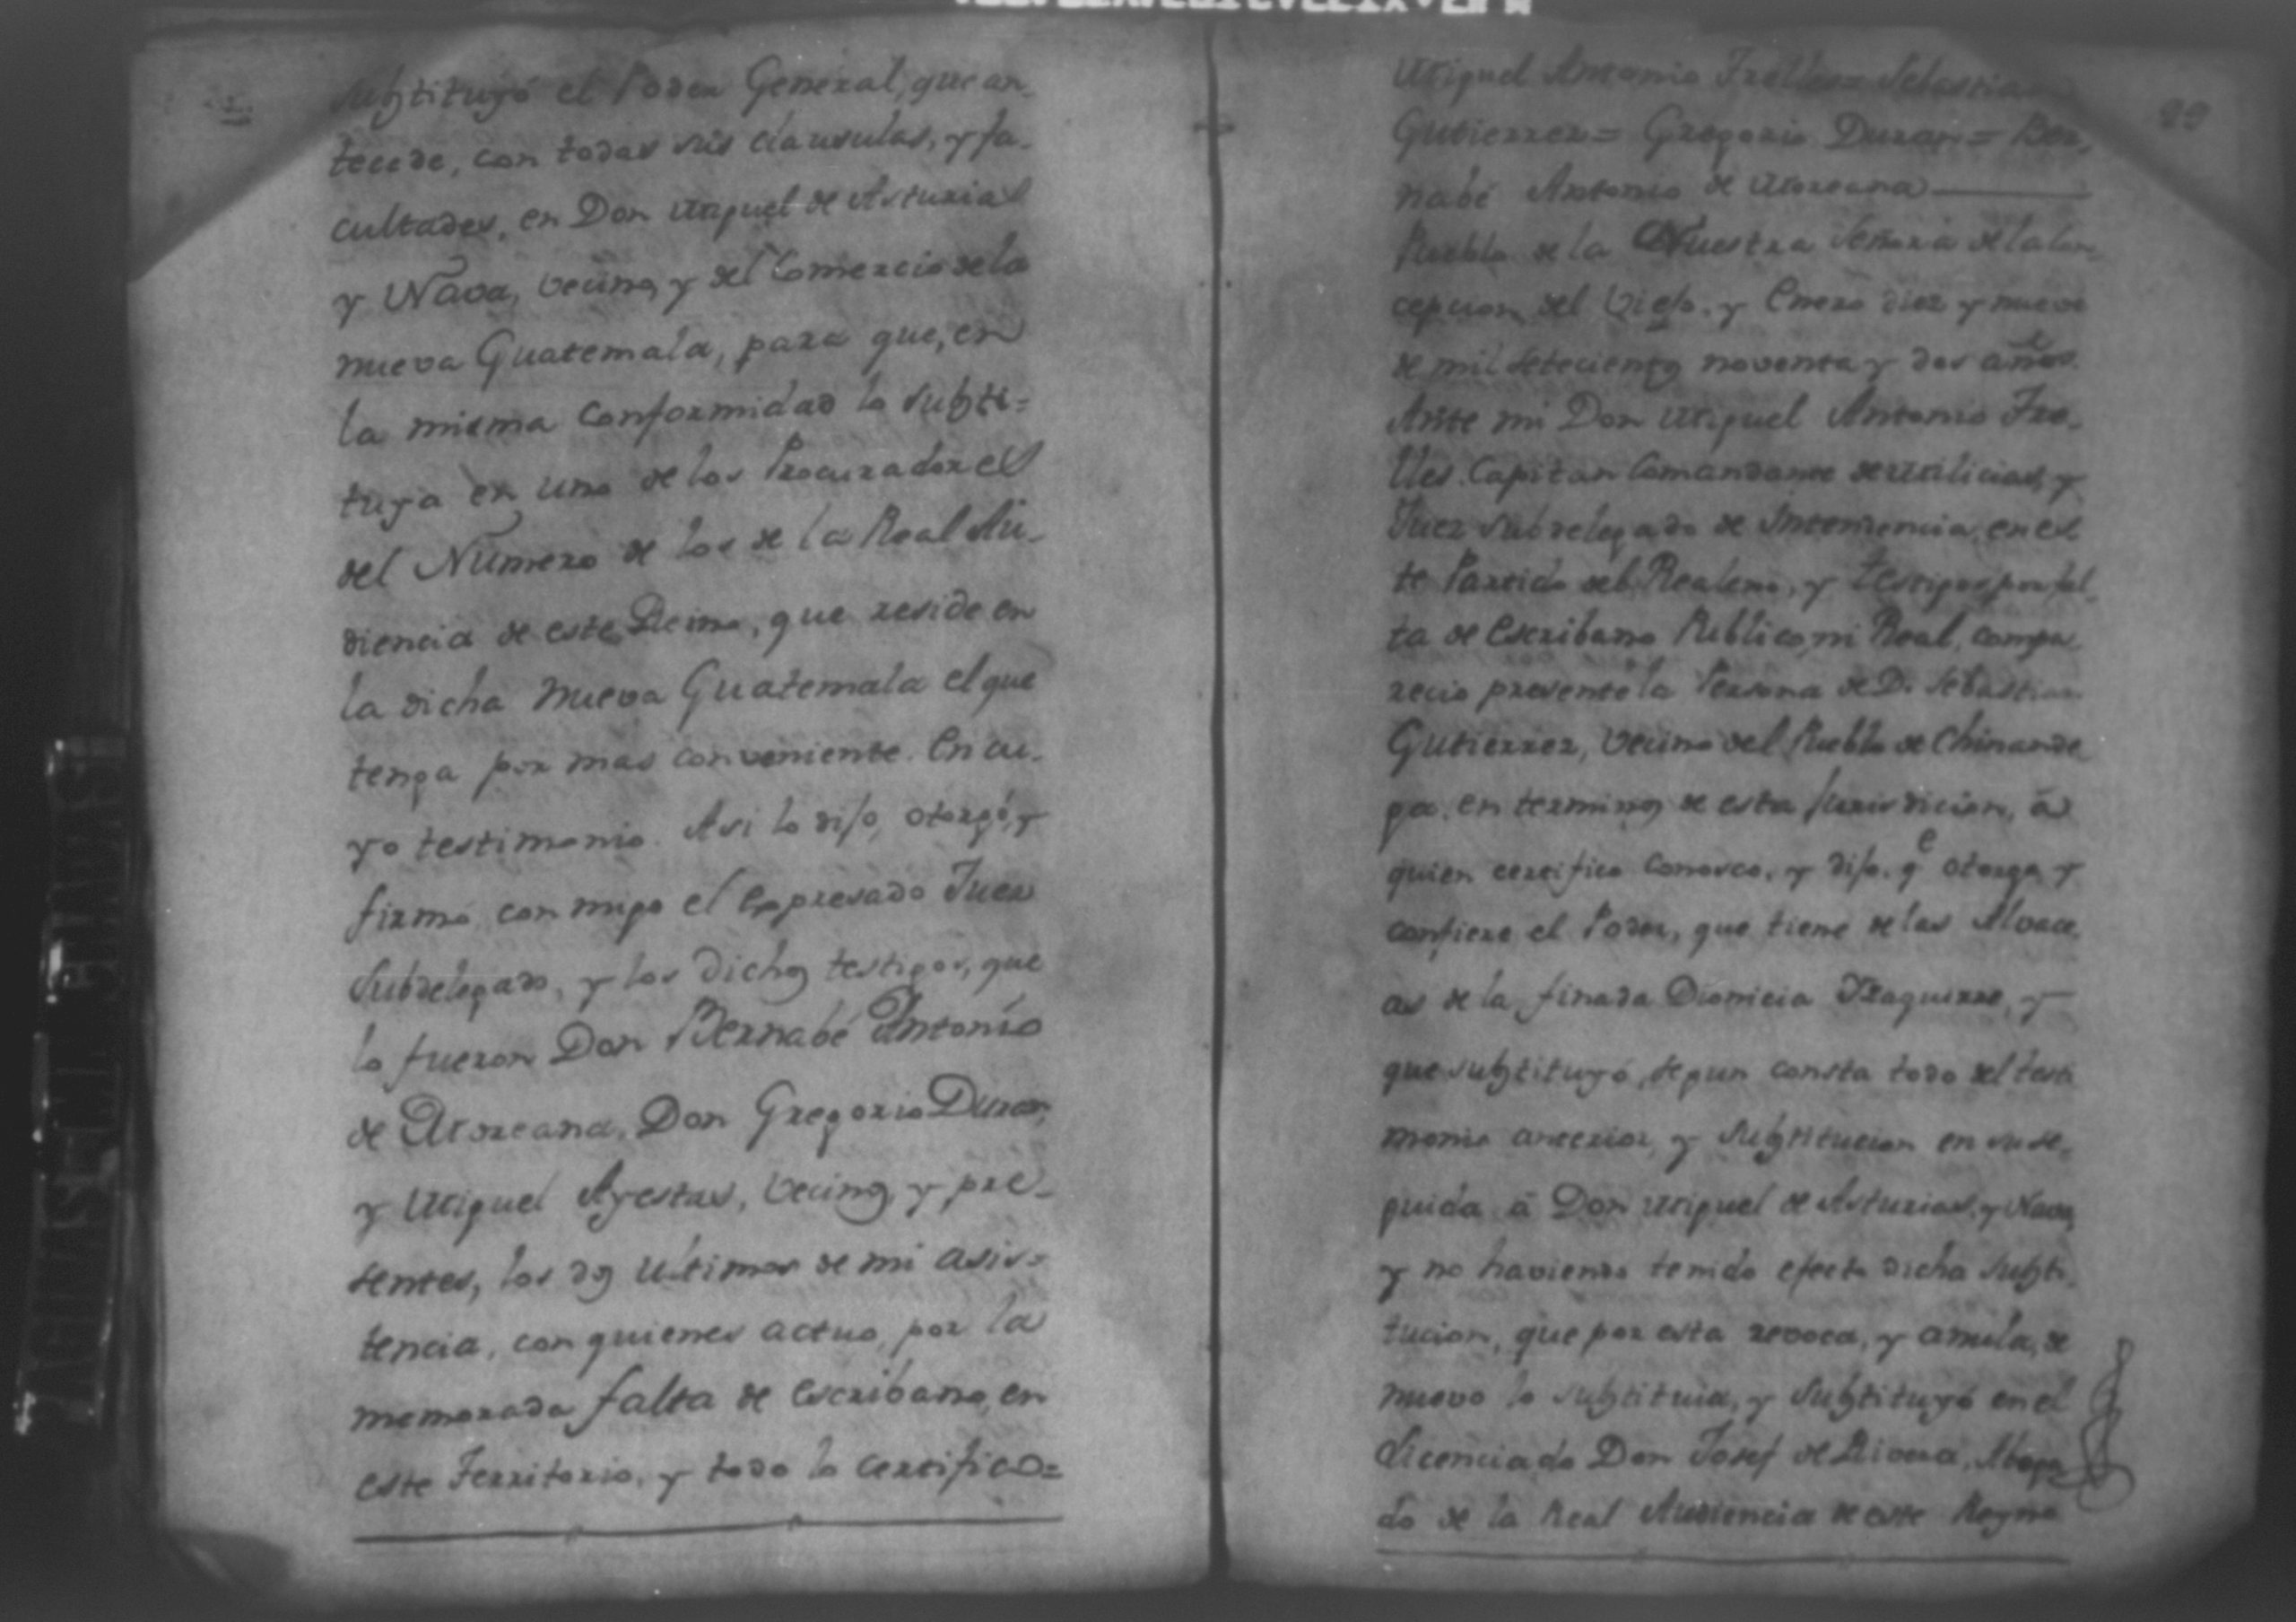 substituyó el Poder General, que an-
tecede, con todas sus clausulas, y fa-
cultades, en Don Miguel de Asturias
y Nava, vecino, y del Comercio de la
nueva Guatemala, para que, en
la misma conformidad lo substi=
tuya en uno de los Procuradores
del Número de los de la Real Au-
diencia de este Reino, que reside en
la dicha Nueva Guatemala el que
tenga por mas conveniente. En cu-
yo testimonio. Asi lo dijo, otorgó, y
firmó con migo el expresado Juez
Subdelegado, y los dichos testigos, que
lo fueron Don Bernabé Antonio
de Moreana, Don Gregorio Duran,
y Miguel Ayestas, vecinos y pre-
sentes, los dos ultimos de mi asis=
tencia, con quienes actuo, por la
memorada falta de Escribano, en
este Territorio, y todo lo certifico=
Miguel Antonio Sebastian
Gutierrez= Gregorio Duran= Ber-
nabé Antonio de Moreana
Pueblo de la Nuestra Señora de la Con-
cepcion del Viejo. y Enero diez y nueve
de mil setecientos noventa y dos años.
Ante mi Don Miguel Antonio
Capitan Comandante de Milicias, y
Juez Subdelegado de Intendencia, en es
te Partido del Realexo, y testigos por fal-
ta de Escribano Publico, ni Real, compa-
recio presente la Persona de D. Sebastian
Gutierrez, vecino del Pueblo de Chinande
ga, en terminos de esta Jurisdicion, á
quien certifico conosco, y dijo, qe otorga y
confiere el Poder, que tiene de las Alvace
as de la finada Dionicia Yzaguirre, y
que substituyó, segun consta todo del testi
monio anterior, y substitucion en su se-
guida á Don Miguel de Asturias, y Nava,
y no haviendo tenido efecto dicha substi-
tucion, que por esta revoca, y anula, de
nuevo lo substituia, y substituyó en el
Licenciado Don Josef de Rivera, Aboga
do de la Real Audiencia de este Reyno